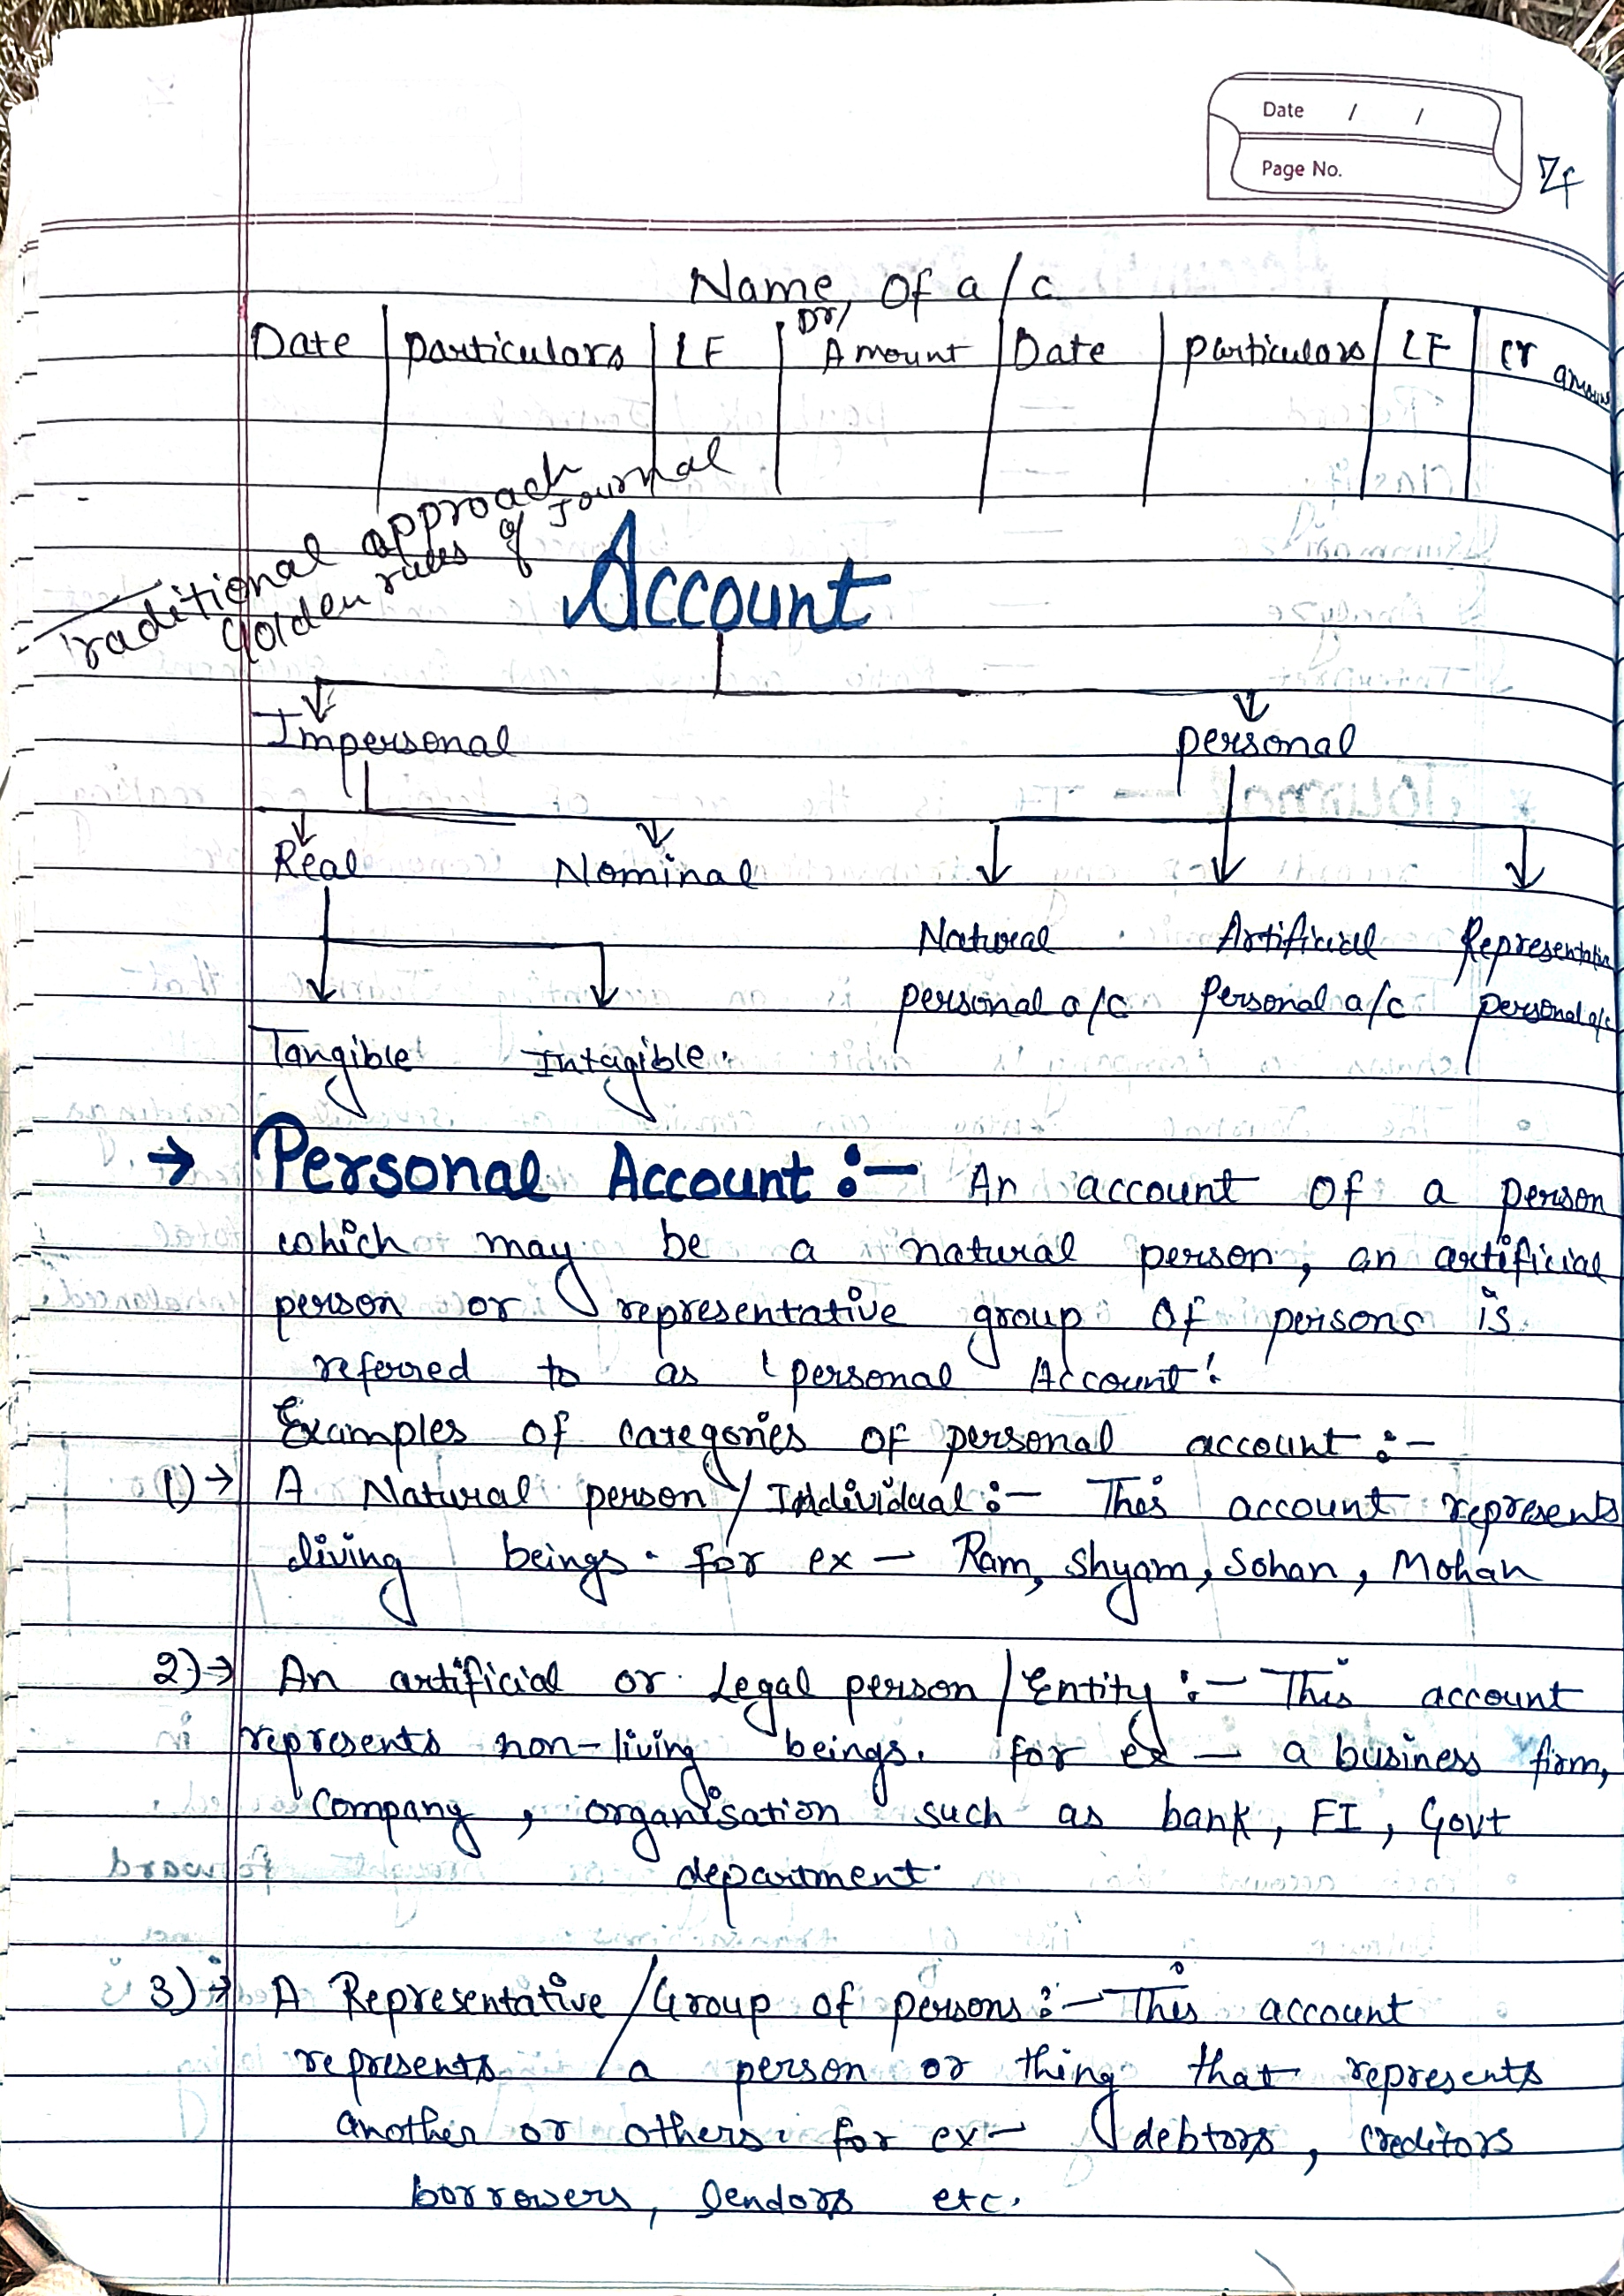 Date / /
Page No.
Name of a/c
Date particulars LF Dr/ Amount Date particulars LF cr amount
Traditional approach
Golden rules of Journal
Account
Impersonal personal
Real Nominal
Natural Artificial Representative
personal a/c Personal a/c personal a/c
Tangible Intagible.
→ Personal Account :- An account of a person
which may be a natural person, an artificial
person or representative group of persons is
referred to as 'personal Account'.
Examples of categories of personal account :-
1)→ A Natural person / Individual :- This account represents
living beings. for ex - Ram, Shyam, Sohan, Mohan
2)→ An artificial or Legal person / Entity :- This account
represents non-living beings. for ex - a business firm,
Company, organisation such as bank, FI, Govt
department.
3)→ A Representative / Group of persons :- This account
represents a person or thing that represents
another or others. for ex - debtors, creditors
borrowers, lendors etc.